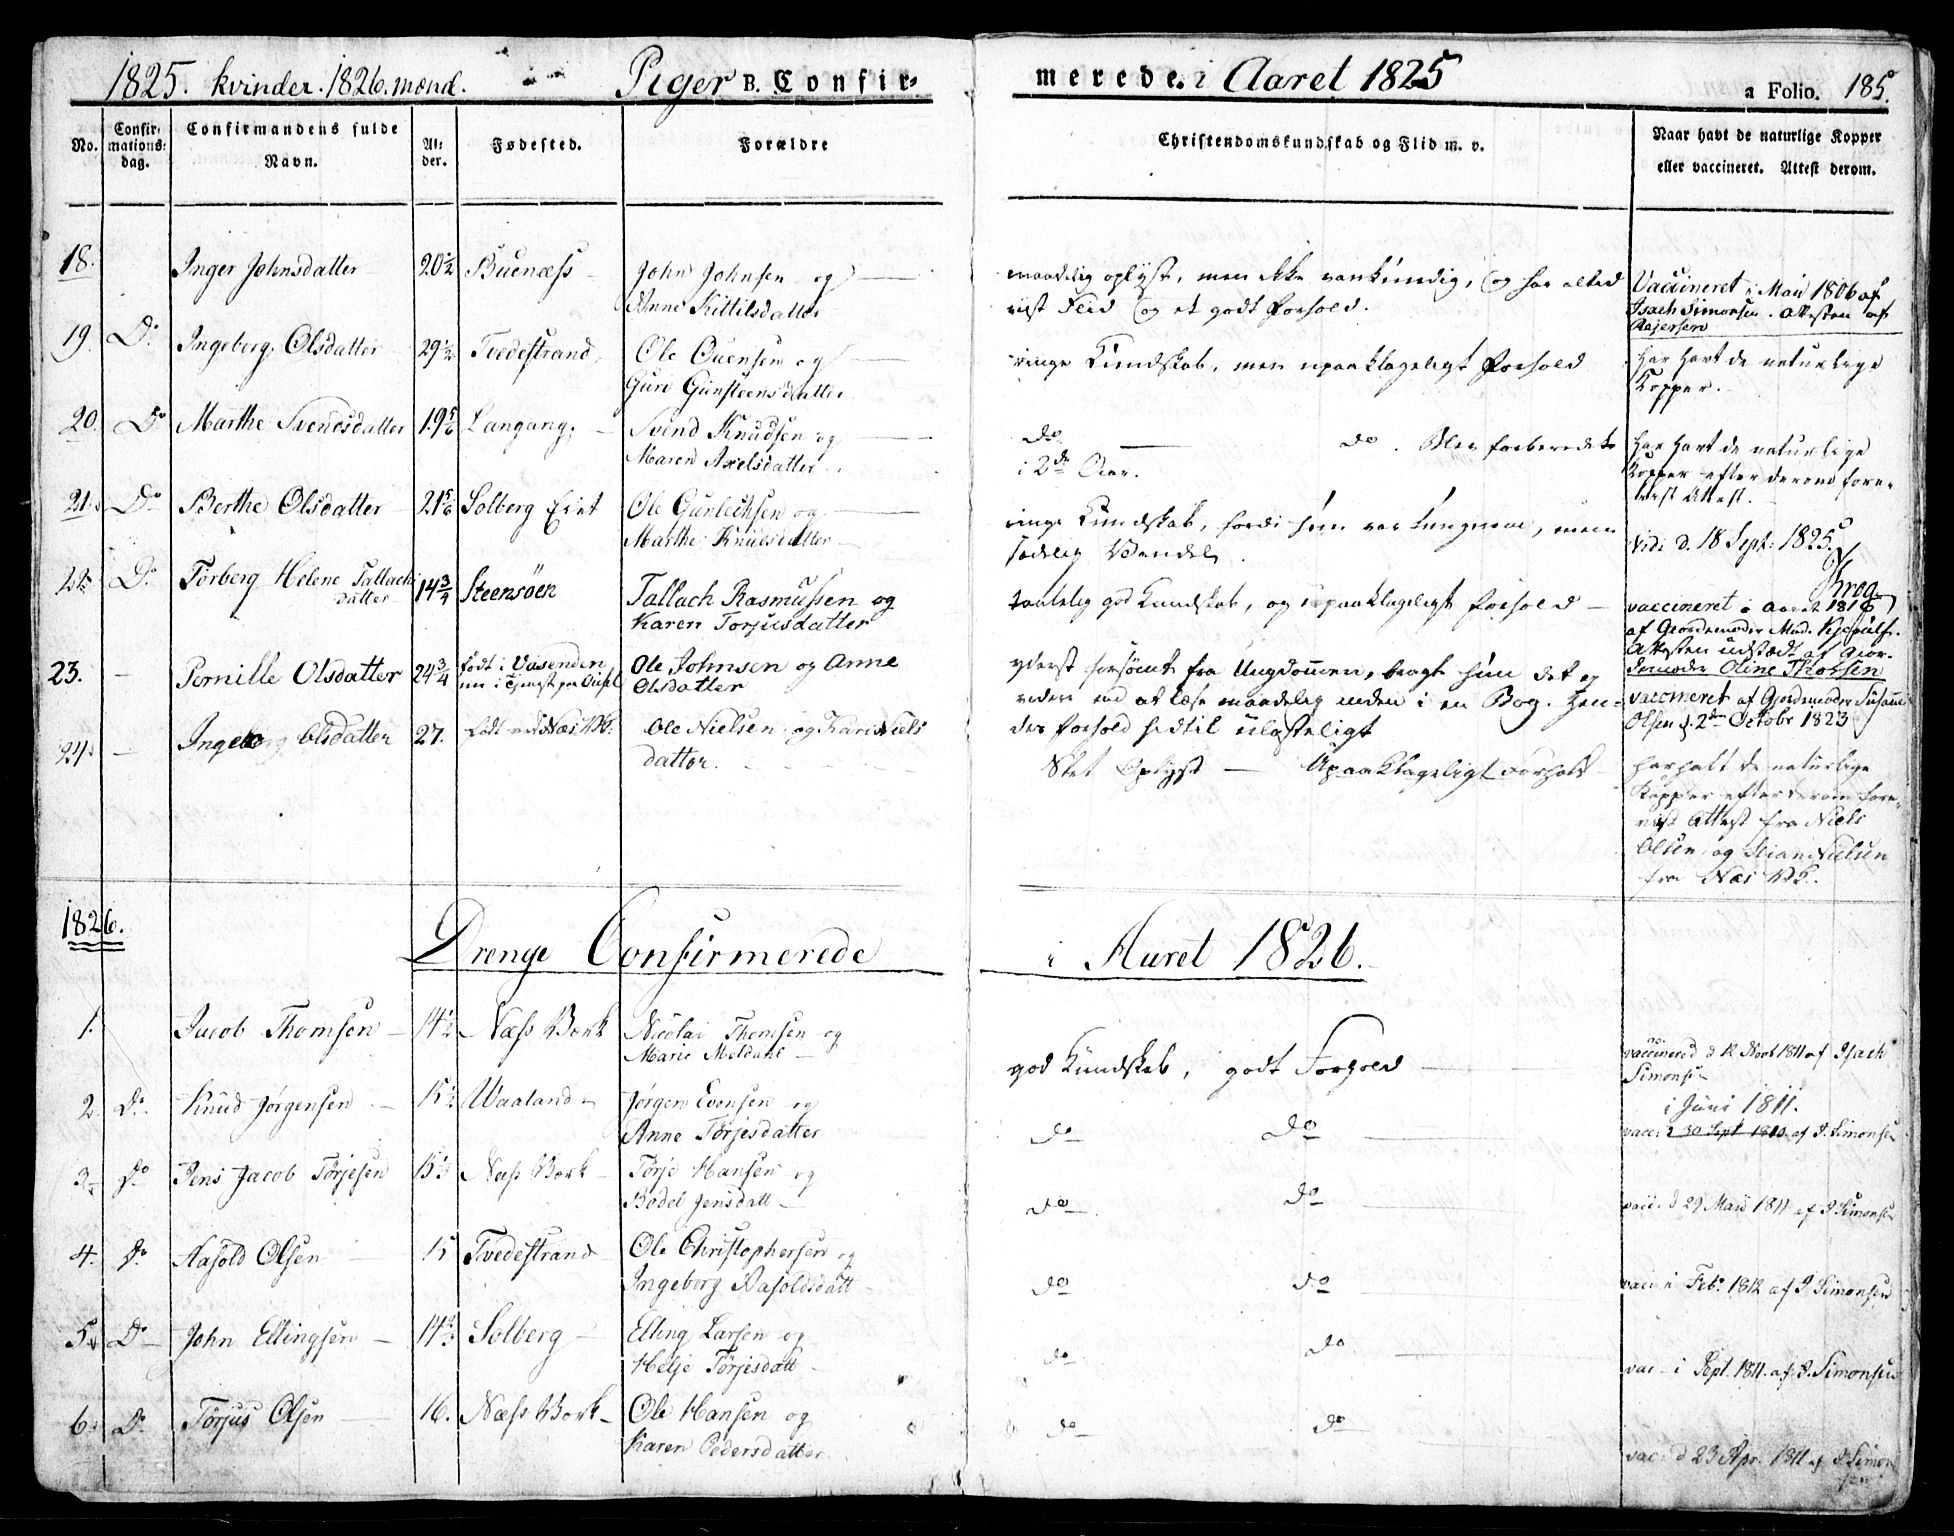 1825. kvinder. 1826. mænd. Piger B. Confir-
merede. i Aaret 1825 a Folio. 185.
No. Confirmations dag. Confirmandens fulde Navn. Alder. Fødested. Forældre
Christendomskundskab og Flid m. v. Naar havt de naturlige Kopper eller vaccineret. Attest derom.
18. Inger Johnsdatter 20½ Buenæss John Johnsen og
Anne Kittilsdatter
maadelig oplyst, men ikke vankundig, og har altid
vist Flid og et godt Forhold.
Vaccineret i Maii 1806 af
Isach Simonsen. Attesten af
19. Do Ingeborg Olsdatter 29½ Tvedestrand Ole Evensen og
Guri Gunsteensdatter
ringe Kundskab, men upaaklageligt Forhold
Har havt de naturlige
Kopper.
20. Do Marthe Svendsdatter 19 5/6 Langang. Svend Knudsen og
Maren Axelsdatter
do do. Blev forberedet
i 2de Aar.
Har havt de naturlige
Kopper efter derom fore-
viist Attest.
21. Do Berthe Olsdatter 21 5/6 Solberg Eiet Ole Gunlechsen og
Marthe Knudsdatter
ringe Kundskab, fordi hun var tungnem, men
sædelig Vandel.
Vidi d. 18 Sept: 1825.
Krog
22. Do Torberg Helene Tallach
datter 14¾ Steensöen Tallach Rasmussen og
Karen Torjusdatter
temmelig god Kundskab, og upaaklageligt Forhold
vaccineret i Aaret 1816
af Gjordemoder Mad.
Attesten udstædt af Gjor-
demoder Oline Thorsen
23. Pernille Olsdatter 24¾ født i Vasenden
nu i Tjenest paa Ole Johnsen og Anne
Olsdatter
yderst forsömt fra Ungdommen, bragt hun det ey
videre end at læse maadelig inden i en Bog. Hen-
des Forhold hidtil ulasteligt
vaccineret af Gjordemoder Susanne
Olsen d. 2den Octobr 1823
24. Ingeborg Olsdatter 27. født ved Næs Vk. Ole Nielsen og Kari Niels
datter.
Slet Oplyst Upaaklageligt Forhold
har havt de naturlige
Kopper efter derom fore-
viist Attest fra Niels
Olsen og Nielsen
fra Næs Vk.
1826.
Drenge Confirmerede i Aaret 1826.
1. Jacob Thomsen 14½ Næss Værk Nicolai Thomsen og
Marie Meldahl
god Kundskab, godt Forhold
vaccinered d 12 Novb 1811 af Isach
Simonsen
2. Do Knud Jørgensen 15½ Waaland Jørgen Evensen og
Anne Tørjesdatter
do do
i Juni 1811.
vacc: d 30 Sept 1810 af I. Simonsen
3. Do Jens Jacob Tørjesen 15½ Næss Værk Tørje Hansen og
Bodel Jensdatt
do do
vacc: d 29 Maii 1811 af I Simonsen
4. Do Aasold Olsen 15 Tvedestrand Ole Christophersen og
Ingeborg Aasoldsdatt
do do
vacc i Feb. 1812 af I Simonsen
5. Do John Ellingsen 14½ Solberg Elling Larsen og
Helje Tørjesdatt
do do
vac i Sept. 1811. af I. Simonsen
6. Do Torjus Olsen 16. Næss Værk Ole Hansen og
Karen Pedersdatter
do do
vac: d 23 Apr. 1811 af I Simon
sen